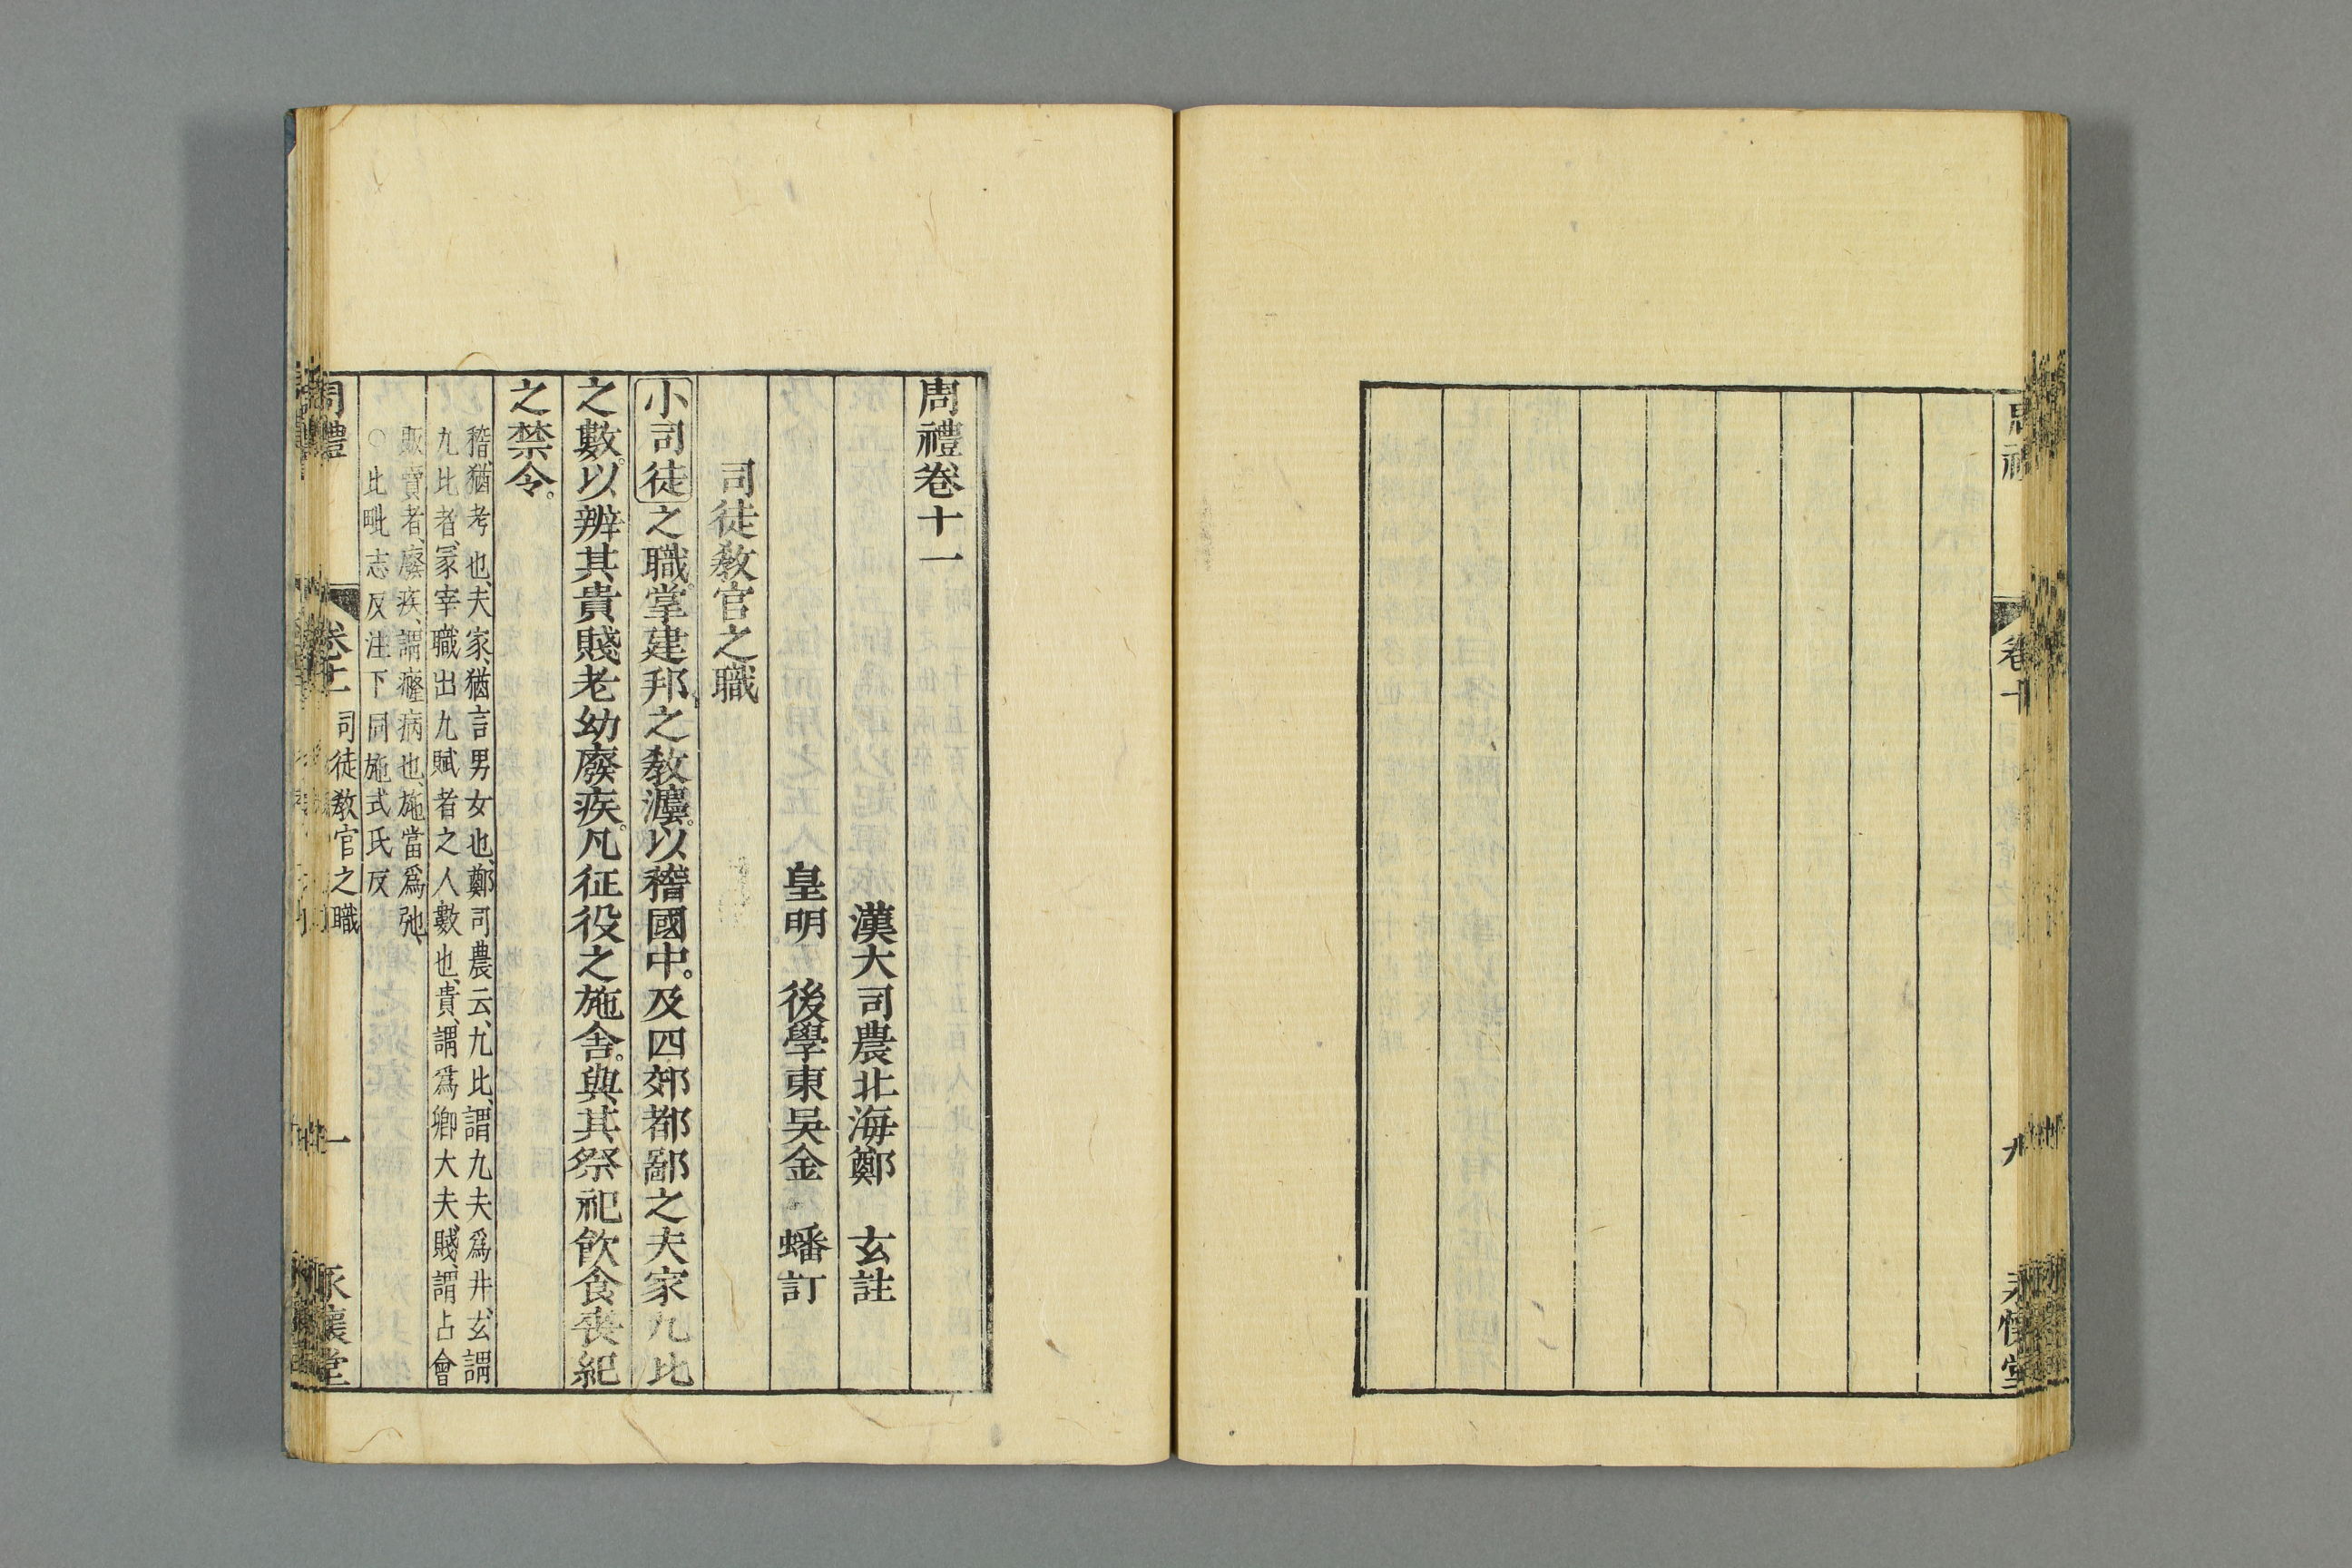 卷十
九
周禮卷十一
漢大司農北海鄭　玄註
皇明　後學東吳金　蟠訂
司徒敎官之職
小司徒之職。掌建邦之敎灋。以稽國中。及四郊都鄙之夫家九比
之數。以辨其貴賤老幼廢疾。凡征役之施舍。與其祭祀飮食喪紀
之禁令。
稽、猶考也、夫家、猶言男女也、鄭司農云、九比、謂九夫爲井、玄謂
九比者、冢宰職出九賦者之人數也、貴、謂爲卿大夫、賤、謂占會
販賣者、廢疾、謂癃病也、施當爲弛、
○比毗志反注下同施式氏反
周禮
卷十一
司徒敎官之職
一
永懷堂